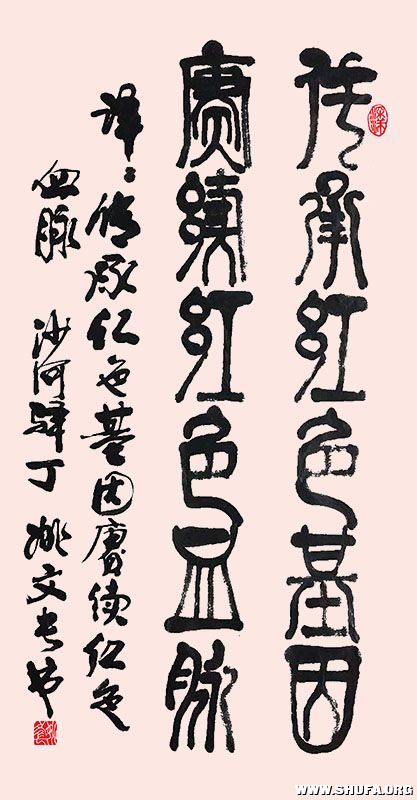 传承红色基因
赓续红色血脉
译：传承红色基因赓续红色
血脉 沙河驿丁 姚文书
WWW.SHUFA.ORG